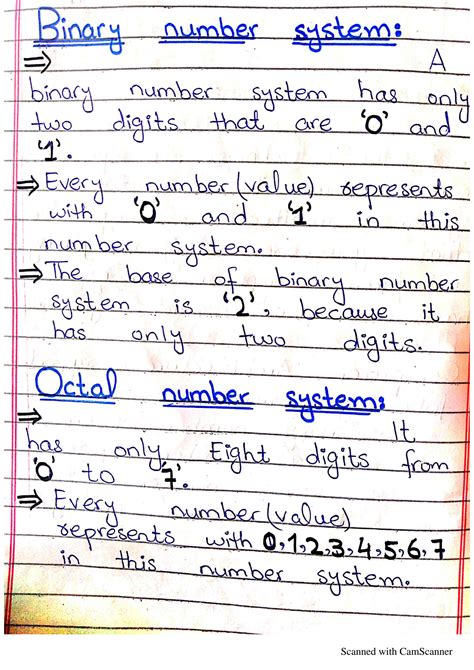 Binary number system:
⇒ A
binary number system has only
two digits that are '0' and
'1'.
⇒ Every number (value) represents
with '0' and '1' in this
number system.
⇒ The base of binary number
system is '2', because it
has only two digits.
Octal number system:
⇒ It
has only Eight digits from
'0' to '7'.
⇒ Every number (value)
represents with 0,1,2,3,4,5,6,7
in this number system.
Scanned with CamScanner